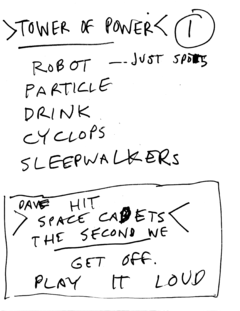 >TOWER OF POWER< 1
ROBOT --- JUST SPOTS
PARTICLE
DRINK
CYCLOPS
SLEEPWALKERS
DAVE HIT
>SPACE CADETS<
THE SECOND WE
GET OFF.
PLAY IT LOUD